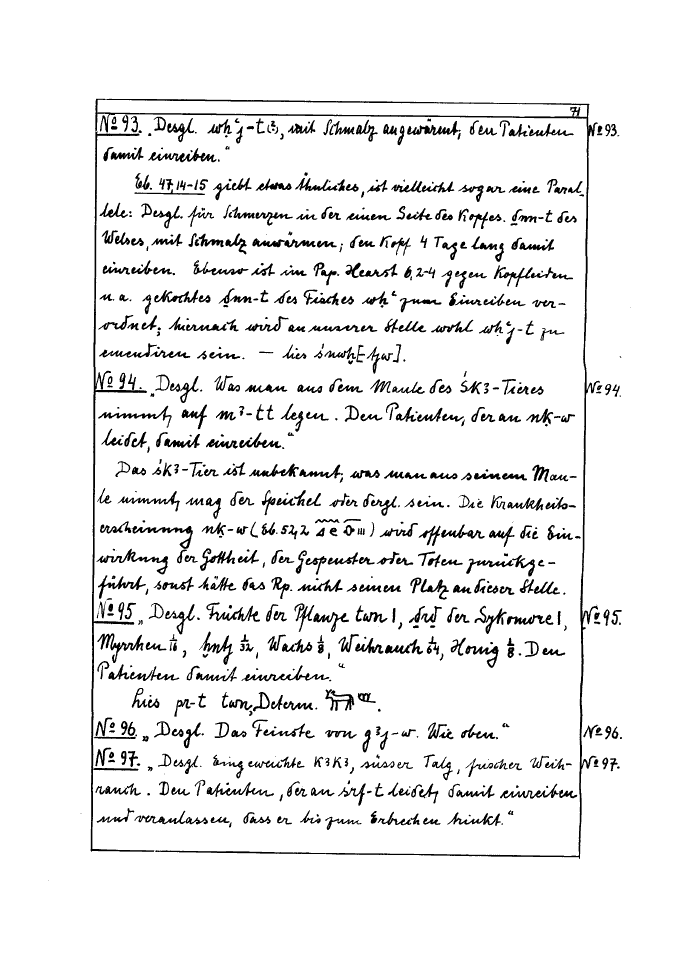 71
No 93. „Desgl. wḥʿj-t(?), mit Schmalz angewärmt; den Patienten No 93.
damit einreiben.“
Eb. 47,14-15 giebt etwas Ähnliches, ist vielleicht sogar eine Paral-
lele: Desgl. für Schmerzen in der einen Seite des Kopfes. ḏnn-t des
Welses, mit Schmalz anwärmen; den Kopf 4 Tage lang damit
einreiben. Ebenso ist im Pap. Hearst 6,2-4 gegen Kopfleiden
u.a. gekochtes ḏnn-t des Fisches wḥʿ zum Einreiben ver-
ordnet; hiernach wird an unserer Stelle wohl wḥʿj-t zu
emendiren sein. — lies śnwḫ[-tjw].
No 94. „Desgl. Was man aus dem Maule des ŚK3-Tieres No 94.
nimmt, auf m3-tt legen. Den Patienten, der an nḳ-w
leidet, damit einreiben.“
Das śK3-Tier ist unbekannt; was man aus seinem Mau-
le nimmt, mag der Speichel oder dergl. sein. Die Krankheits-
erscheinung nḳ-w (Eb. 52,2 ) wird offenbar auf die Ein-
wirkung der Gottheit, der Gespenster oder Toten zurückge-
führt, sonst hätte das Rp. nicht seinen Platz an dieser Stelle.
No 95 „Desgl. Früchte der Pflanze twn 1, ḏrḏ der Sykomore 1, No 95.
Myrrhen 1/16, ḥntj 1/32, Wachs 1/8, Weihrauch 1/64, Honig 1/8. Den
Patienten damit einreiben.“
Lies pr-t twn, Determ. .
No 96. „Desgl. Das Feinste von g3j-w. Wie oben.“ No 96.
No 97. „Desgl. Eingeweichte K3K3, süsser Talg, frischer Weih- No 97.
rauch. Den Patienten, der an śrf-t leidet, damit einreiben
und veranlassen, dass er bis zum Erbrechen trinkt.“